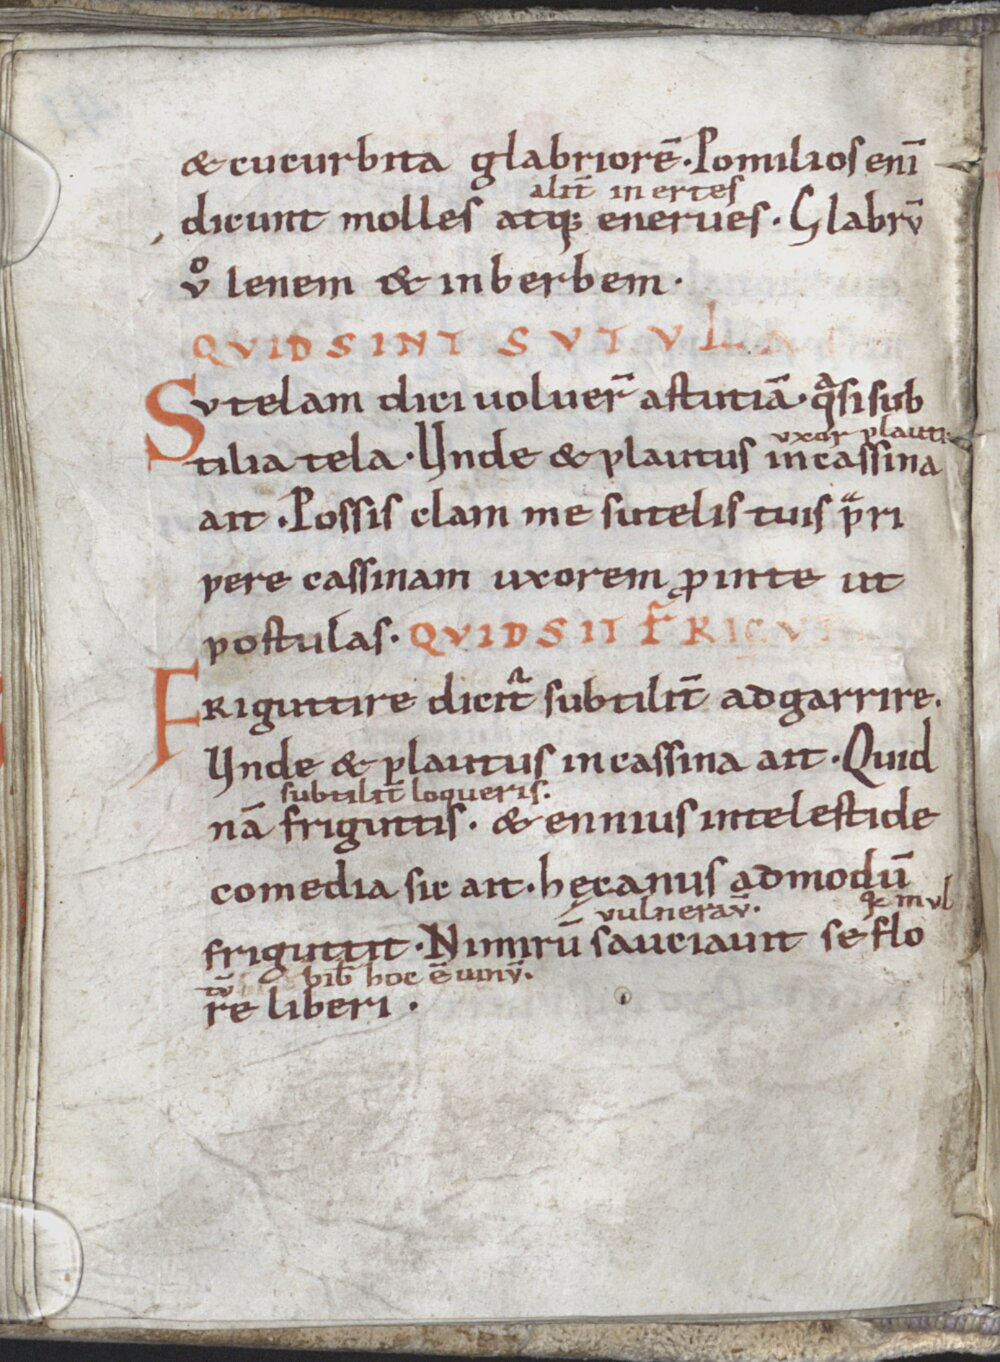 & cucurbita glabriorē. Pomilios enī
alit̄ inertes
dicunt molles atq; enerues. Glabrū
v̊ lenem & inberbem.
QVID SINT SVTVLA
Sutelam dici uoluer̄ astutiā. qͣsi sub
uxor plauti
tilia tela. Unde & plautus in cassina
ait. Possis clam me sutelis tuis pͣri
pere cassinam uxorem ꝓinte ut
postulas. QVID SIT FRIGVT
Friguttire dicit᷑ subtilit̄ adgarrire.
Unde & plautus in cassina ait. Quid
subtilit̄ loqueris.
nā friguttis. & ennius intelestide
comedia sic ait. hęcanus admodū
vulnerav̄. mul
friguttit. Nimirū sauciauit se flo
tū bib̄ hoc ē uinū.
re liberi.